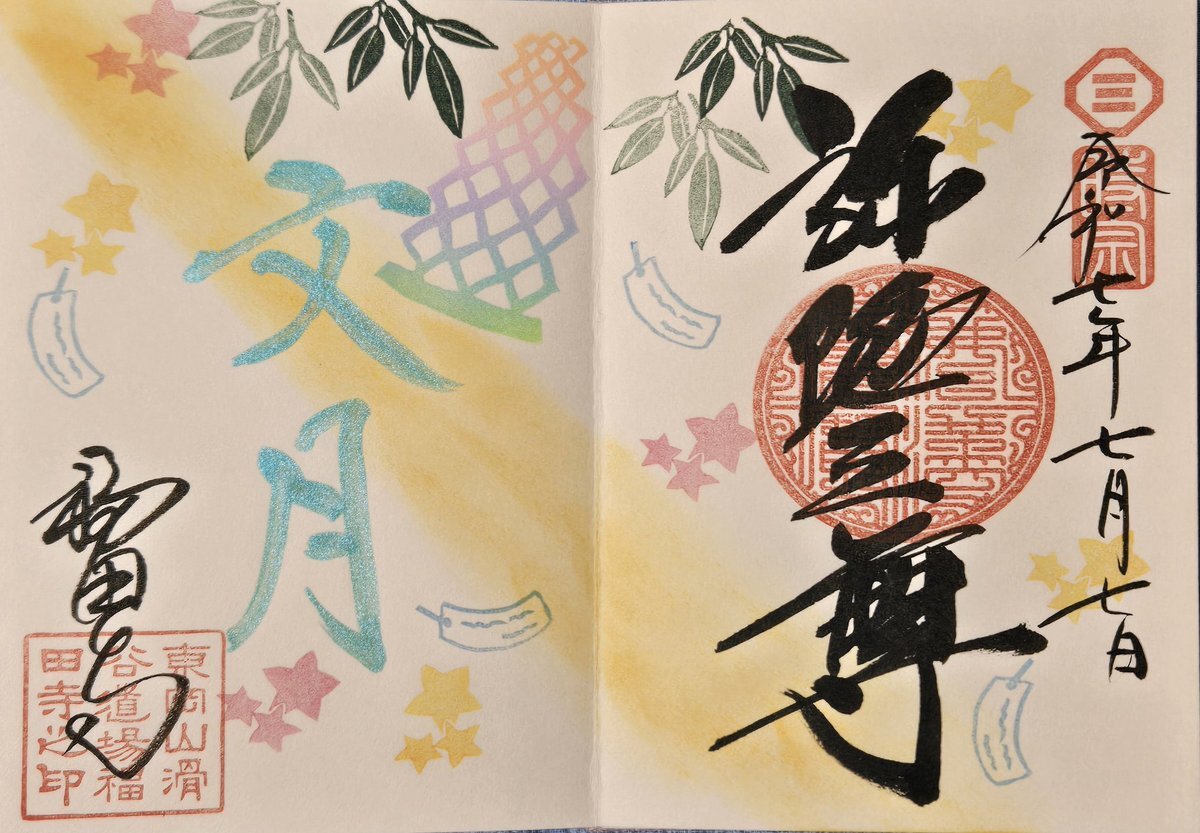 三
時宗
令和七年七月七日
弥陀三尊
文月
福田寺
東岡山滑
谷道場福
田寺之印